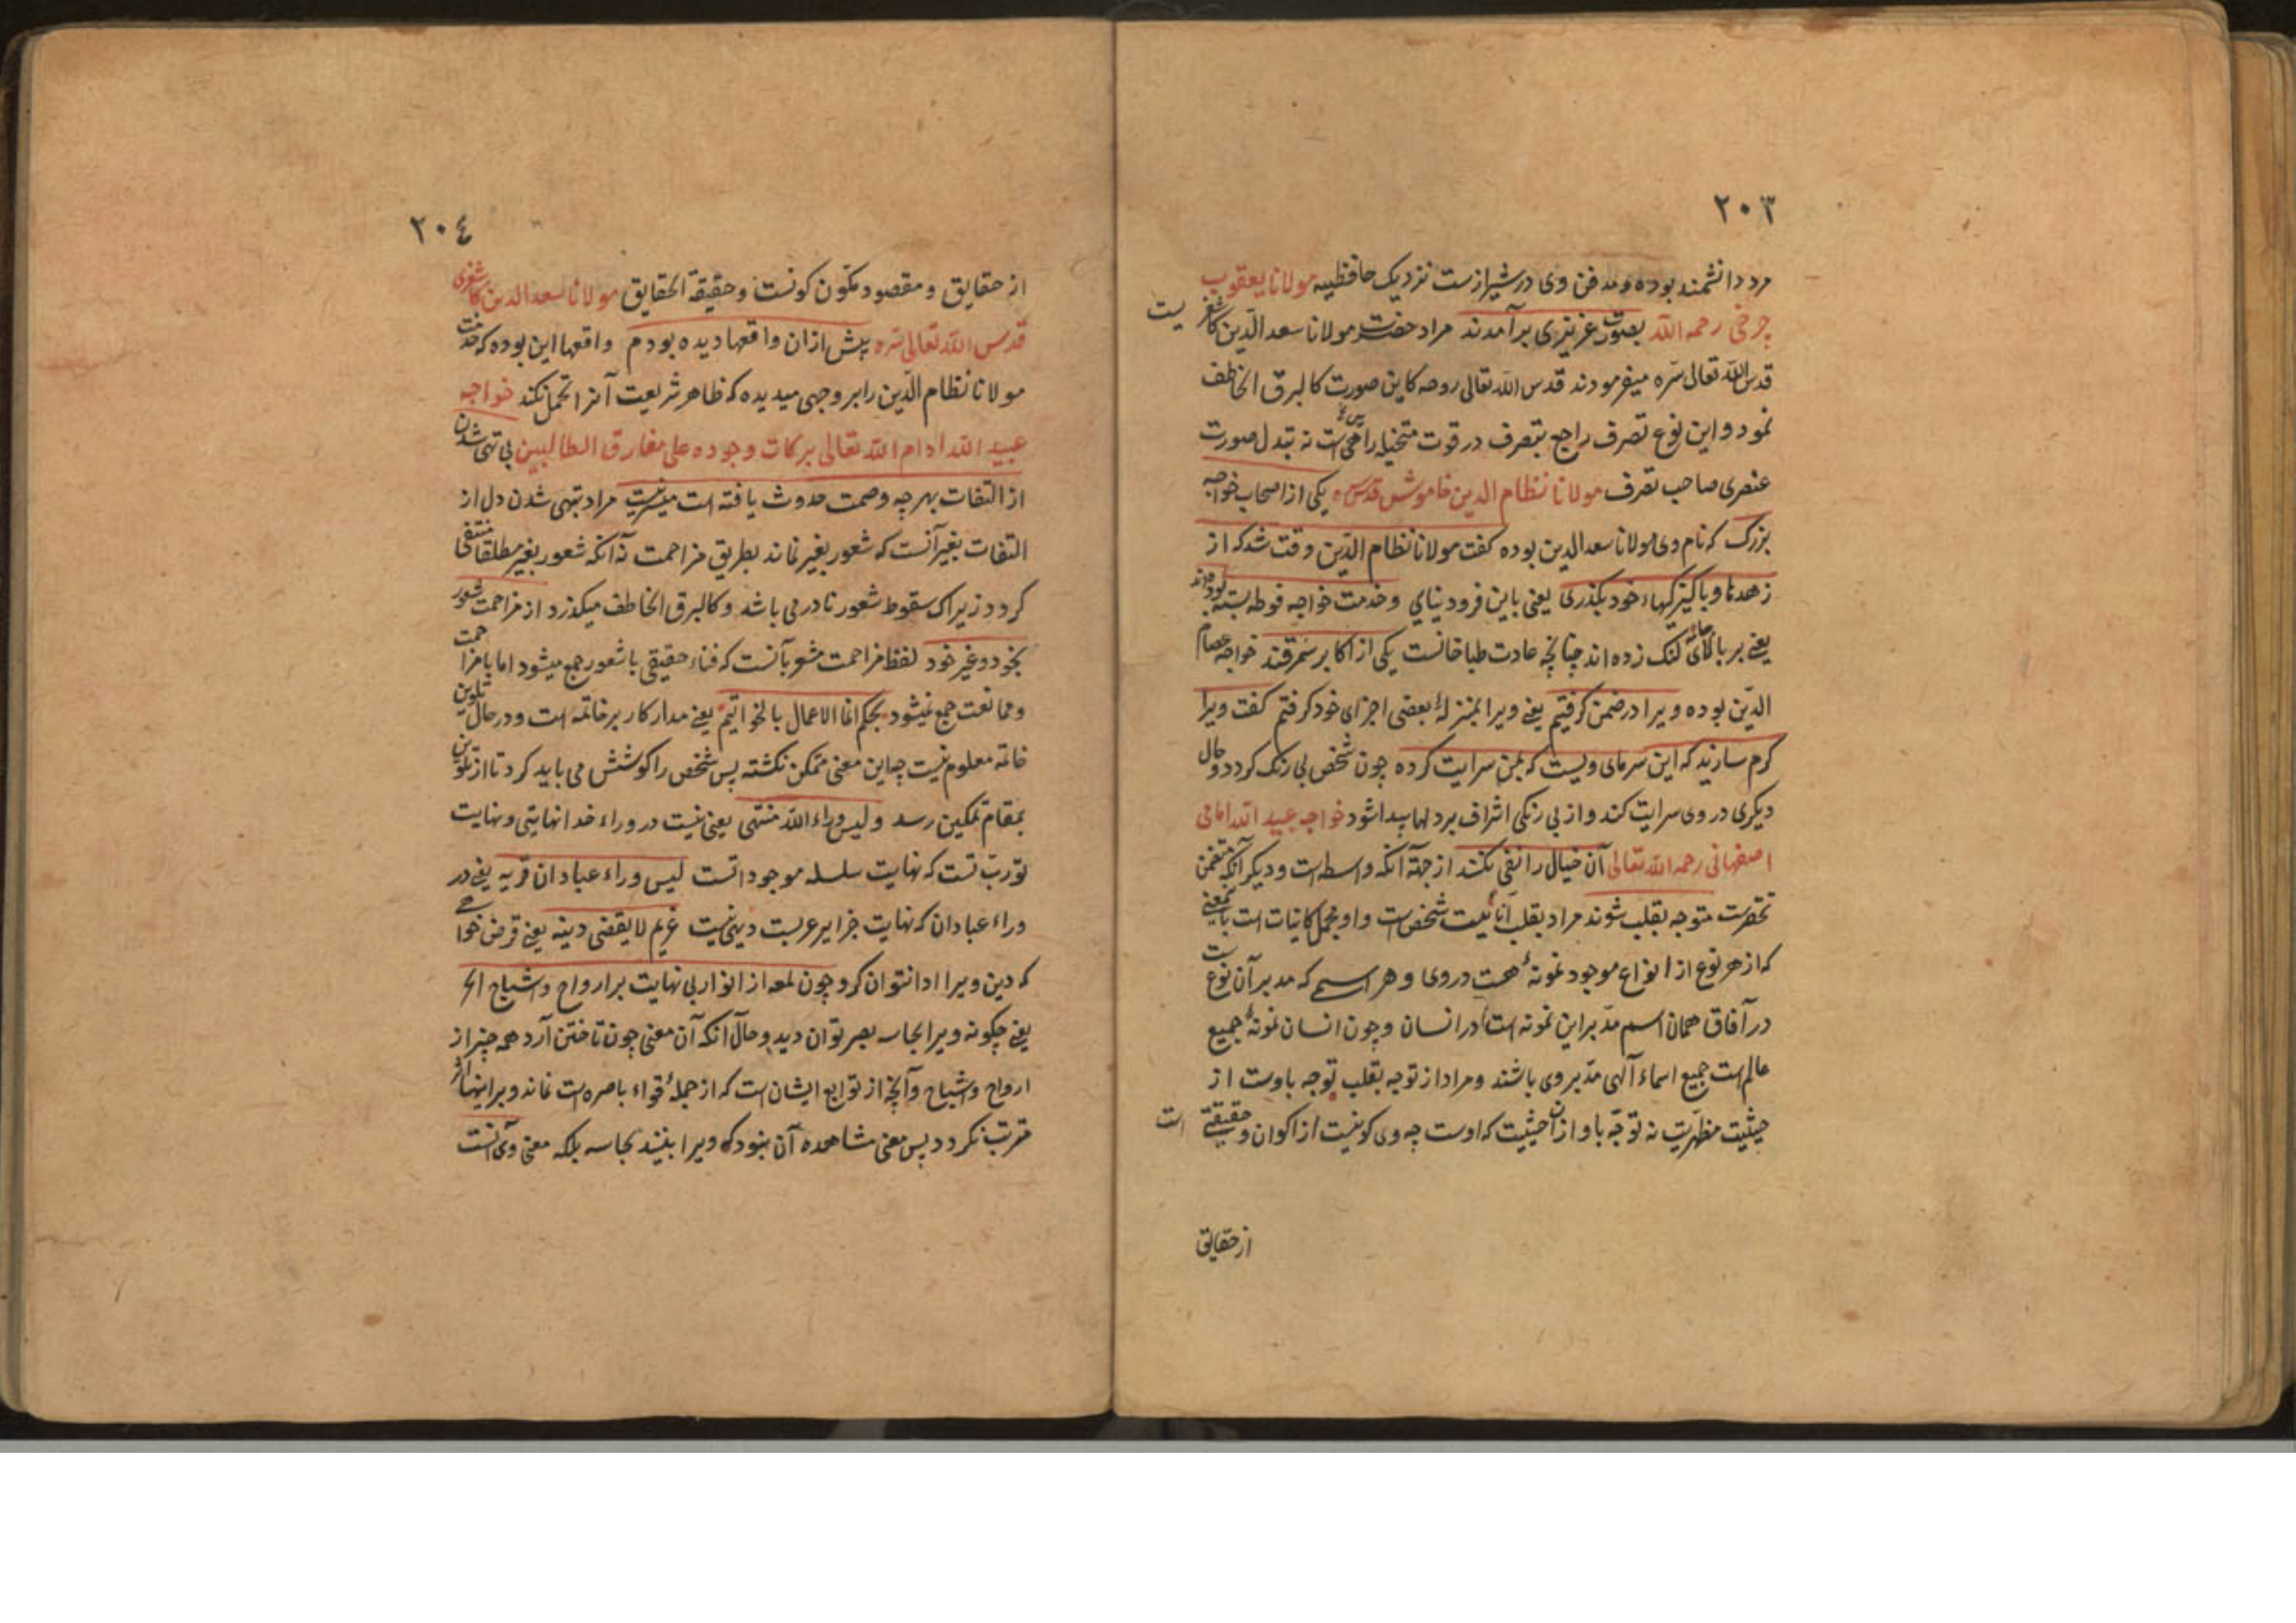 ٢٠٣
مرد دانشمند بوده و مدفن وی در شیرازست نزدیک حافظیه مولانا یعقوب
چرخی رحمه الله بصورت عزیزی برآمدند مراد حضرت مولانا سعد الدین کاشغریست
قدس الله تعالی سره میفرمودند قدس الله تعالی روحه کاین صورت کالبرق الخاطف
نمود و این نوع تصرف راجع بتصرف در قوت متخیله رائی است نه تبدل صورت
عنصری صاحب تصرف مولانا نظام الدین خاموش قدس سره یکی از اصحاب خواجه
بزرک که نام وی مولانا سعد الدین بوده کفت مولانا نظام الدین وقت شد که از
زهدها و پاکیزکیهاء خود بکذری یعنی باین فرود نیایی و خدمت خواجه فوطه بسته بوده اند
یعنی بر بالای جامه لنک زده اند چنانچه عادت طباخانست یکی از اکابر سمرقند خواجه عصام
الدین بوده ویرا در ضمن کرفتیم یعنی ویرا بمنزلهٔ بعضی اجزای خود کرفتم کفت ویرا
کرم سازید که این سرمای ویست که بمن سرایت کرده چون شخص بی رنک کردد و حال
دیکری در وی سرایت کند و از بی رنکی اشراف بر دلها پیدا شود خواجه عبید الله امامی
اصفهانی رحمه الله تعالی آن خیال را نفی نکنند از جهة آنکه واسطه است و دیکر آنکه متضمن
تحقیرست متوجه بقلب شوند مراد بقلب انانیت شخص است و او مجمل کاینات است باین معنی
که از هر نوع از انواع موجود نمونهٔ هست در وی و هر اسمی که مدبر آن نوعست
در آفاق همان اسم مدبر این نمونه است در انسان و چون انسان نمونهٔ جمیع
عالم است جمیع اسماء آلهی مدبر وی باشند و مراد از توجه بقلب توجه باوست از
حیثیت مظهریت نه توجه باو از آن حیثیت که اوست چه وی کونیست از اکوان و حقیقتی است
از حقایق
٢٠٤
از حقایق و مقصود مکون کونست و حقیقة الحقایق مولانا سعد الدین کاشغری
قدس الله تعالی سره پیش ازان واقعها دیده بودم واقعها این بوده که خدمت
مولانا نظام الدین را بر وجهی میدیده که ظاهر شریعت آنرا تحمل نکند خواجه
عبید الله ادام الله تعالی برکات وجوده علی مفارق الطالبین بی تهی شدن
از التفات بهرچه وصمت حدوث یافته است میسر نیست مراد بتهی شدن دل از
التفات بغیر آنست که شعور بغیر نماند بطریق مزاحمت نه آنکه شعور بغیر مطلقا منتفی
کردد زیراک سقوط شعور نادر می باشد و کالبرق الخاطف میکذرد از مزاحمت شعور
بخود و غیر خود لفظ مزاحمت مشعر بآنست که فناء حقیقی با شعور جمع میشود اما با مزاحمت
و ممانعت جمع نمیشود بحکم انما الاعمال بالخواتیم یعنی مدار کار بر خاتمه است و در حال تلوین
خاتمه معلوم نیست چه این معنی متمکن نکشته پس شخص را کوشش می باید کرد تا از تلوین
بمقام تمکین رسد و لیس وراء الله منتهی یعنی نیست در وراء خدا نهایتی و نهایت
تو رب تست که نهایت سلسله موجوداتست لیس وراء عبادان قریه یعنی در
وراء عبادان که نهایت جزایر عربست دیهی نیست غریم لا یقضی دینه یعنی قرض خواهی
که دین ویرا ادا نتوان کرد چون لمعه از انوار بی نهایت بر ارواح و اشباح الخ
یعنی چکونه ویرا بحاسه بصر توان دید و حال آنکه آن معنی چون تاختن آرد همه چیز از
ارواح و اشباح و آنچه از توابع ایشان است که از جملهٔ قواء باصره است نماند و بر اینها اثر
مترتب نکردد پس معنی مشاهده آن نبود که ویرا بینند بحاسه بلکه معنی وی آنست